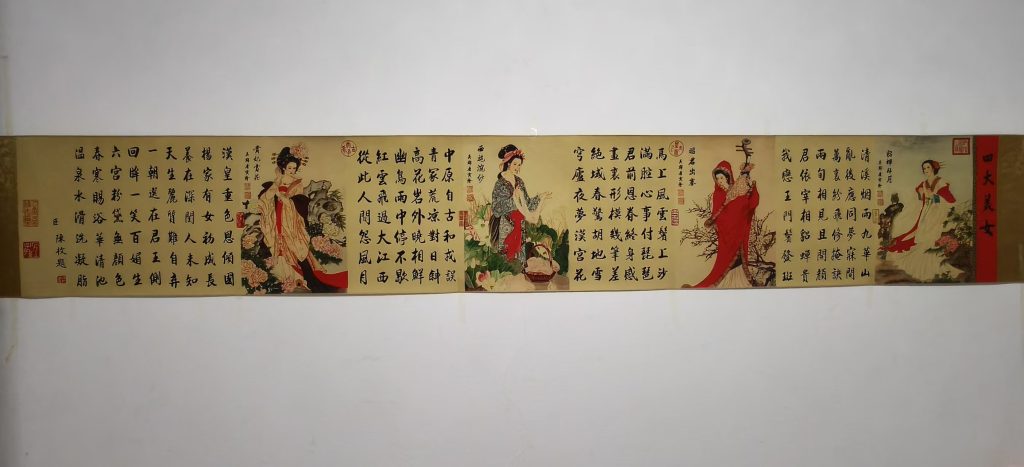 四大美女
貂蟬拜月
清溪烟雨九華山
亂後應同夢寐間
萬裏分飛休掩袂
兩旬相見且開顏
君依宰相貂蟬貴
我戀王門鬢發班
昭君出塞
馬上風雲鬢上沙
滿腔心事付琵琶
君前恩眷終身感
畫裏形模幾筆差
絕域春鶯胡地雪
穹廬夜夢漢宮花
西施浣紗
中原自古和戎誤
青冢荒凉對日斜
高花岩外曉相鮮
幽鳥雨中停不歇
紅雲飛過大江西
從此人間怨風月
貴妃賞花
漢皇重色思傾國
楊家有女初成長
養在深閨人未知
天生麗質難自弃
一朝選在君王側
回眸一笑百媚生
六宮粉黛無顏色
春寒賜浴華清池
溫泉水滑洗凝脂
臣 陳枚題